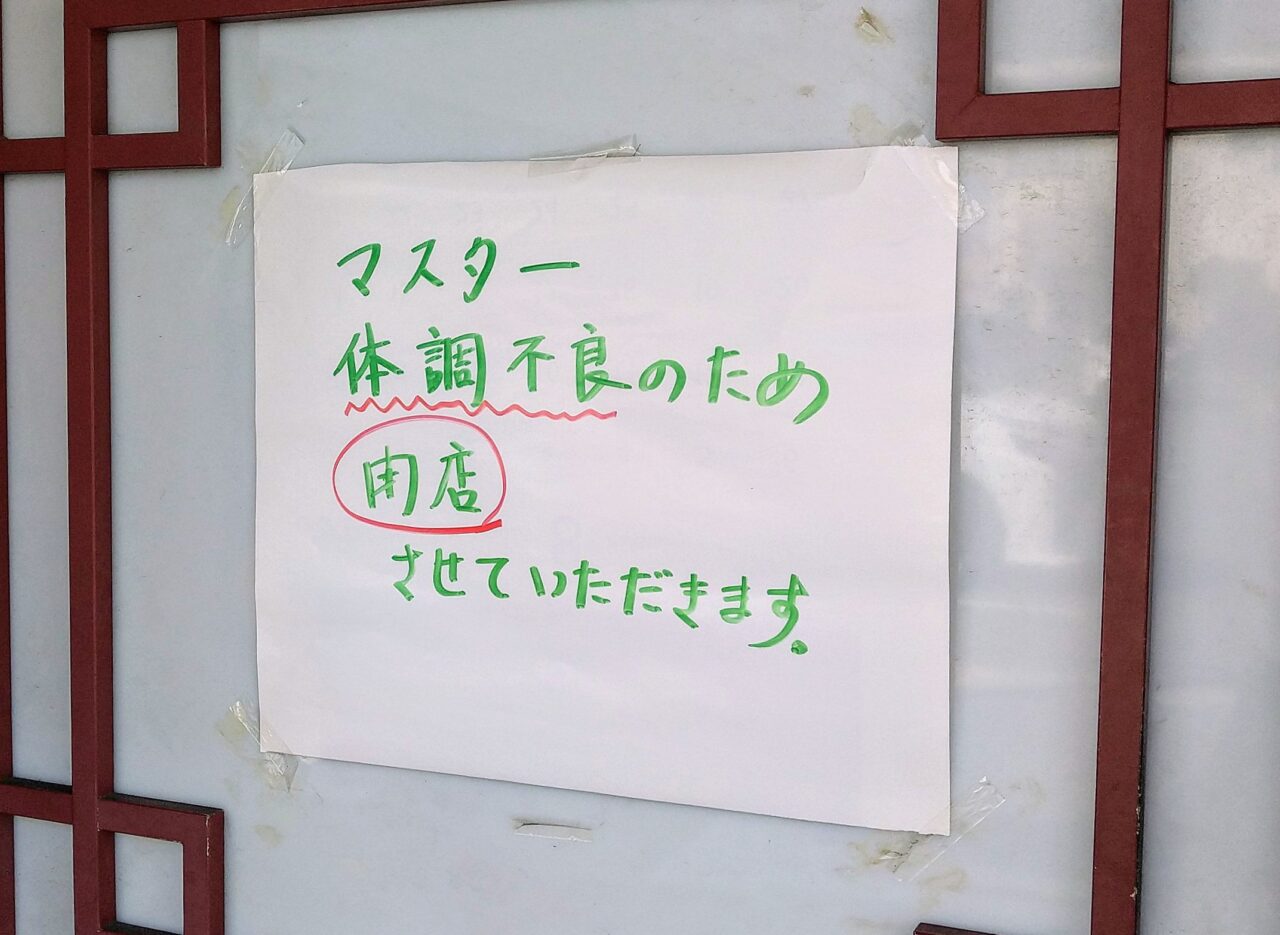 マスター
体調不良のため
閉店
させていただきます。